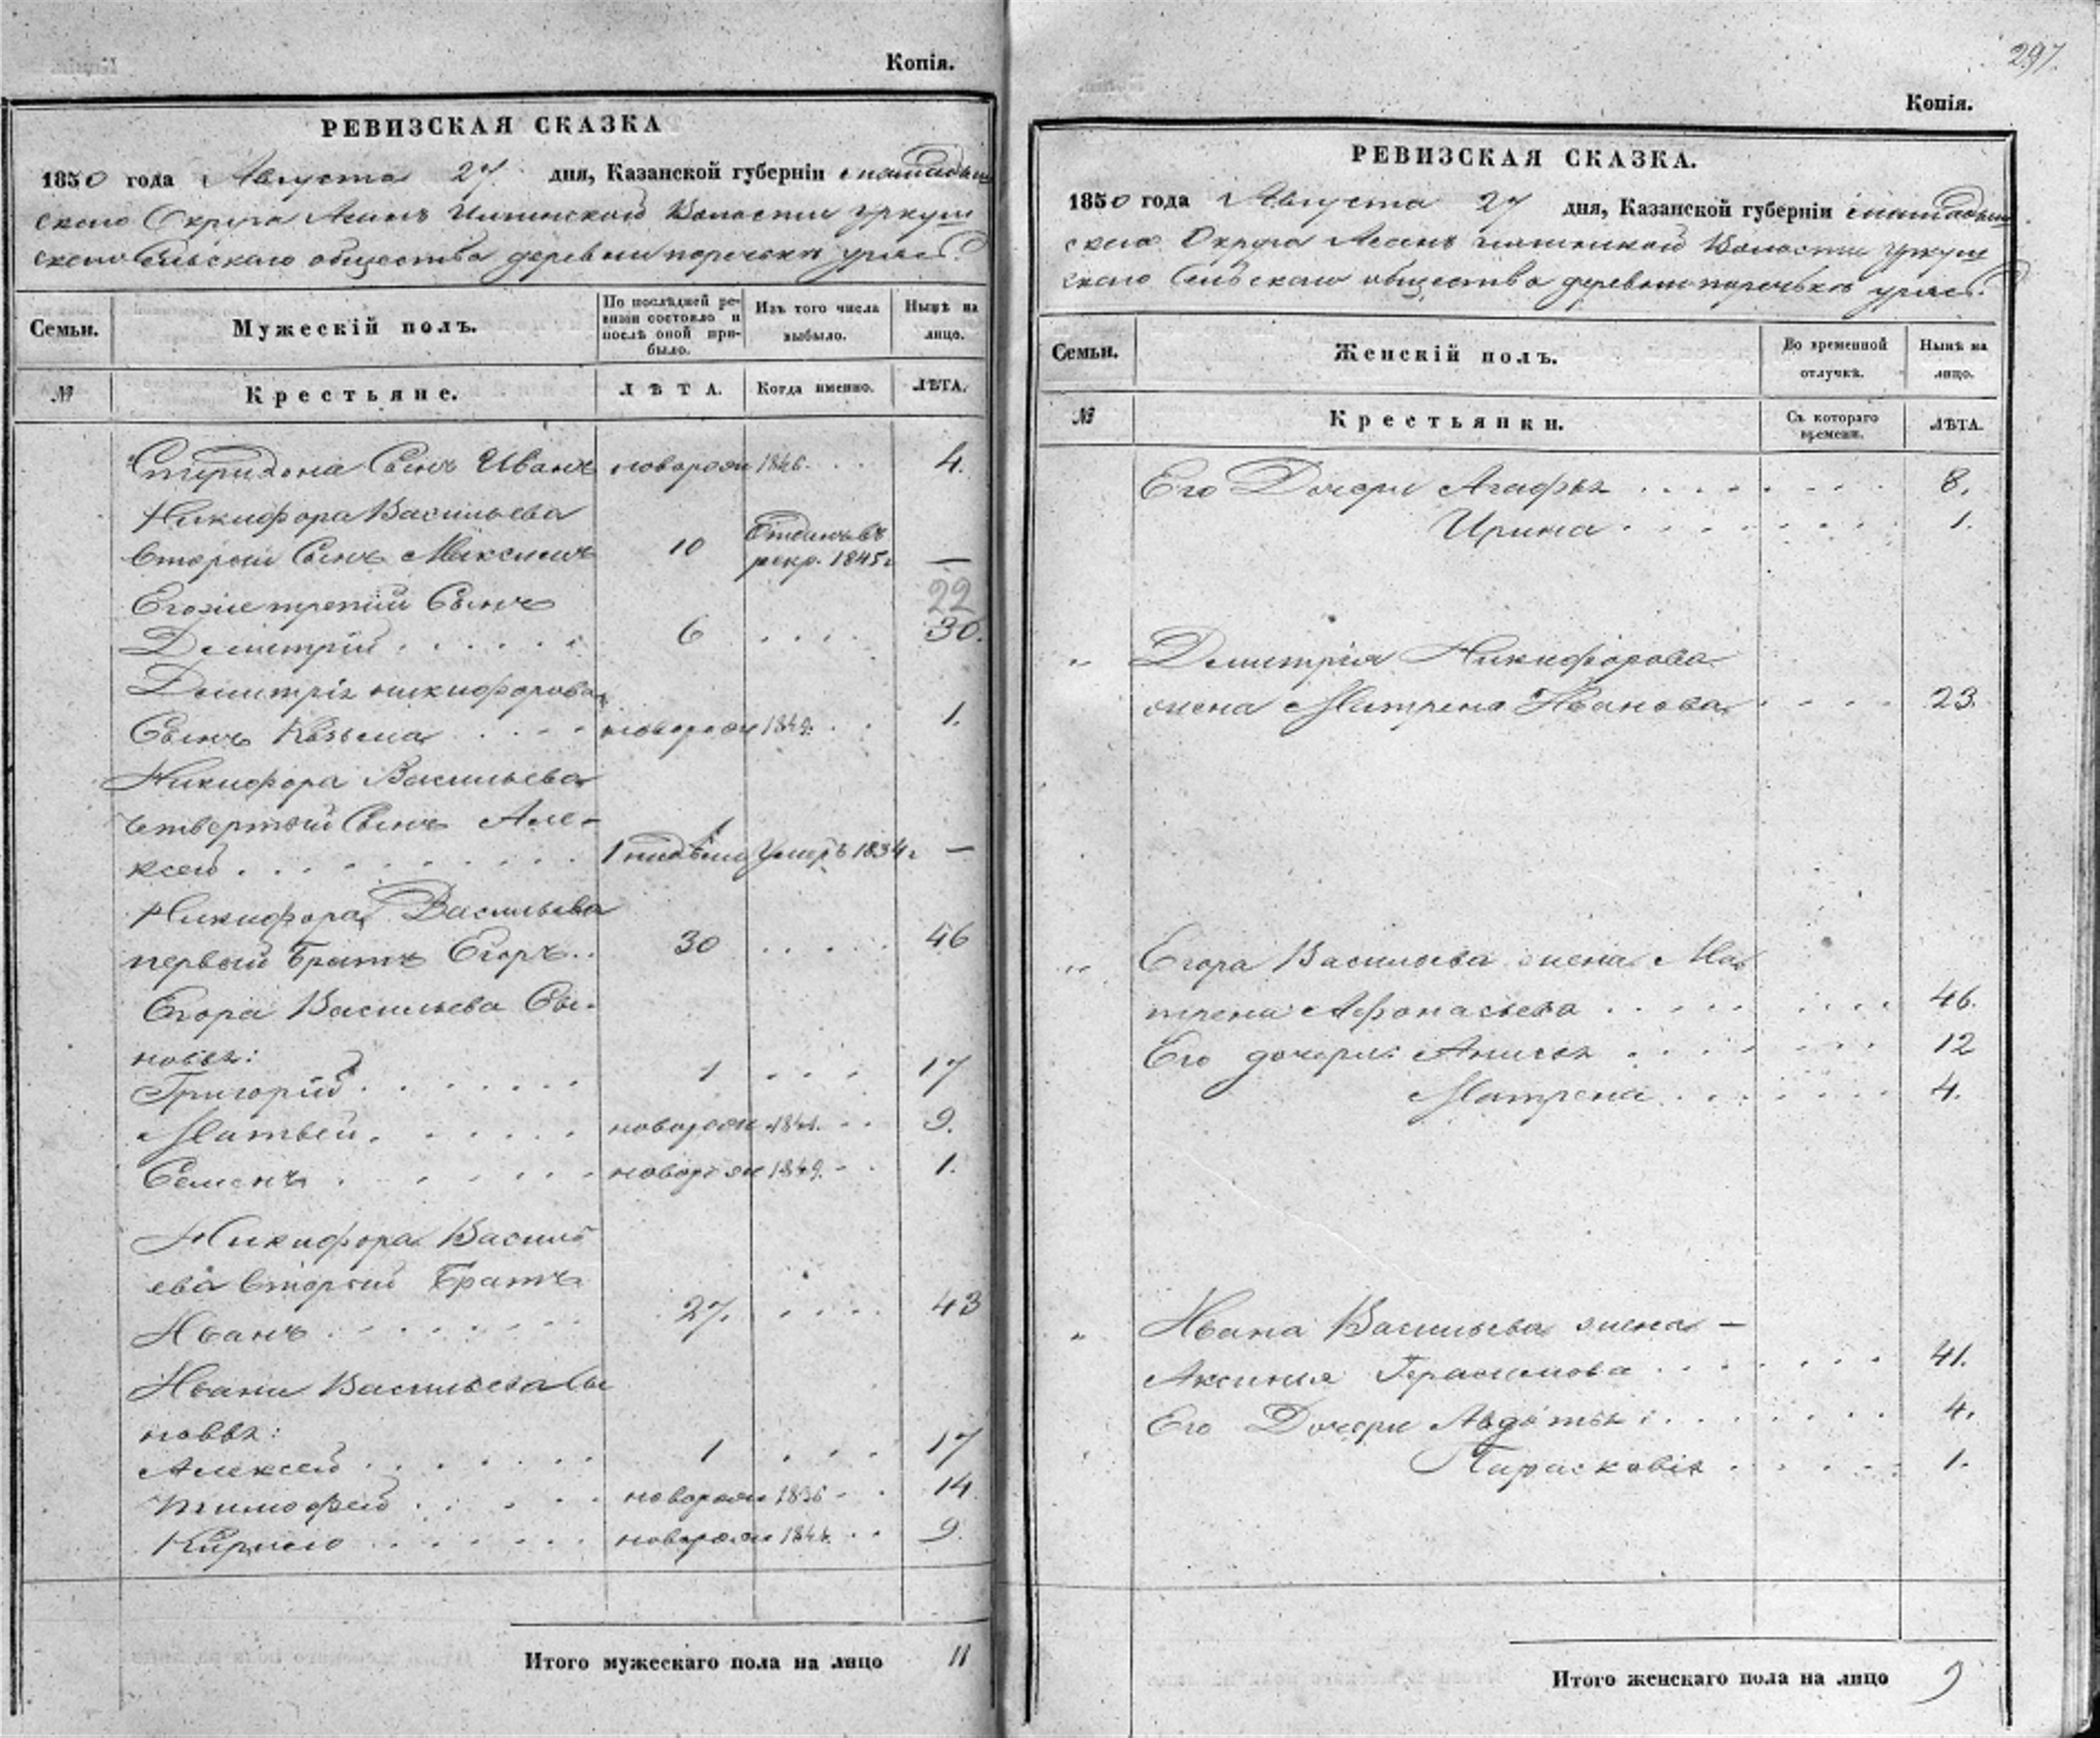 Копія.
РЕВИЗСКАЯ СКАЗКА
1850 года Августа 27 дня, Казанской губерніи
скаго Округа Волости
скаго Сельскаго общества деревни
Семьи.
Мужескій полъ.
По послѣдней ревизіи состояло и послѣ оной прибыло.
Изъ того числа выбыло.
Нынѣ на лицо.
№
Крестьяне.
ЛѢТА.
Когда именно.
ЛѢТА.
Спиридона Сынъ Иванъ новорож 1846. 4.
Никифора Васильева
второй Сынъ Максимъ 10 Отданъ въ рекр. 1845г —
Егоже третий Сынъ 22
Дмитрій 6 30.
Дмитрія Никифорова
Сынъ Козьма новорож 1849. 1.
Никифора Васильева
четвертый Сынъ Але-
ксей 1 недѣли Умеръ 1834г —
Никифора Васильева
первый Братъ Егоръ 30 46
Егора Васильева Сы-
новья:
Григорій 1 17
Матвей новорож 1841. 9.
Семенъ новорож 1849. 1.
Никифора Василь
ева второй Братъ
Иванъ 27. 43
Ивана Васильева Сы
новья:
Алексей 1 17
Тимофей новорож 1836 14
Кирило новорож 1841. 9.
Итого мужескаго пола на лицо 11
297.
Копія.
РЕВИЗСКАЯ СКАЗКА.
1850 года Августа 27 дня, Казанской губерніи
скаго Округа Волости
скаго Сельскаго общества деревни
Семьи.
Женскій полъ.
Во временной отлучкѣ.
Нынѣ на лицо.
№
Крестьянки.
Съ котораго времени.
ЛѢТА.
Его Дочери Агафья 8.
Ирина 1.
" Дмитрія Никифорова
жена Матрена Иванова 23.
" Егора Васильева жена Ма
трена Афонасьева 46.
Его дочери: Анисья 12
Матрена 4.
" Ивана Васильева жена –
Аксинья Герасимова 41.
Его Дочери Авдотья: 4.
Парасковія 1.
Итого женскаго пола на лицо 9